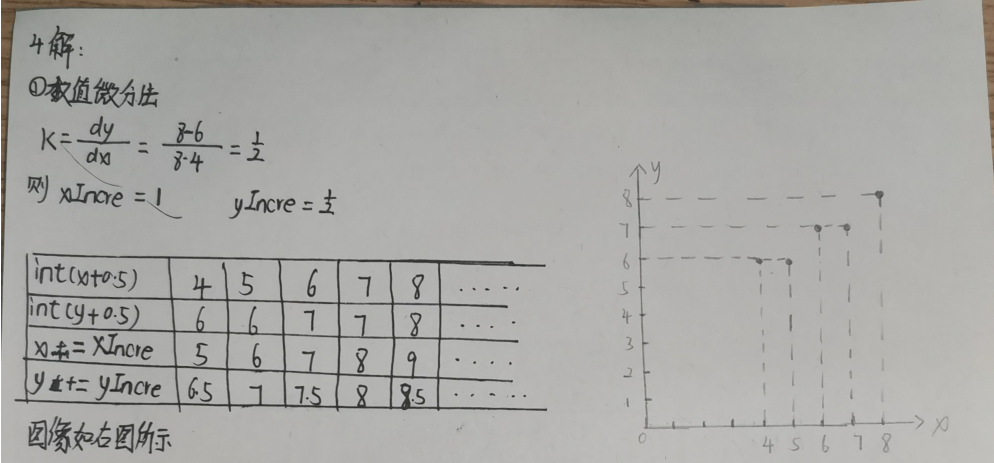 4解:
①数值微分法
K=dy/dx = 8-6/8-4 = 1/2
则 xIncre = 1 yIncre = 1/2
int(x+0.5) 4 5 6 7 8 ·····
int(y+0.5) 6 6 7 7 8 ····
x+=XIncre 5 6 7 8 9 ····
y+=yIncre 6.5 7 7.5 8 8.5 ·····
图像如右图所示
y
8
7
6
5
4
3
2
1
0 4 5 6 7 8 x